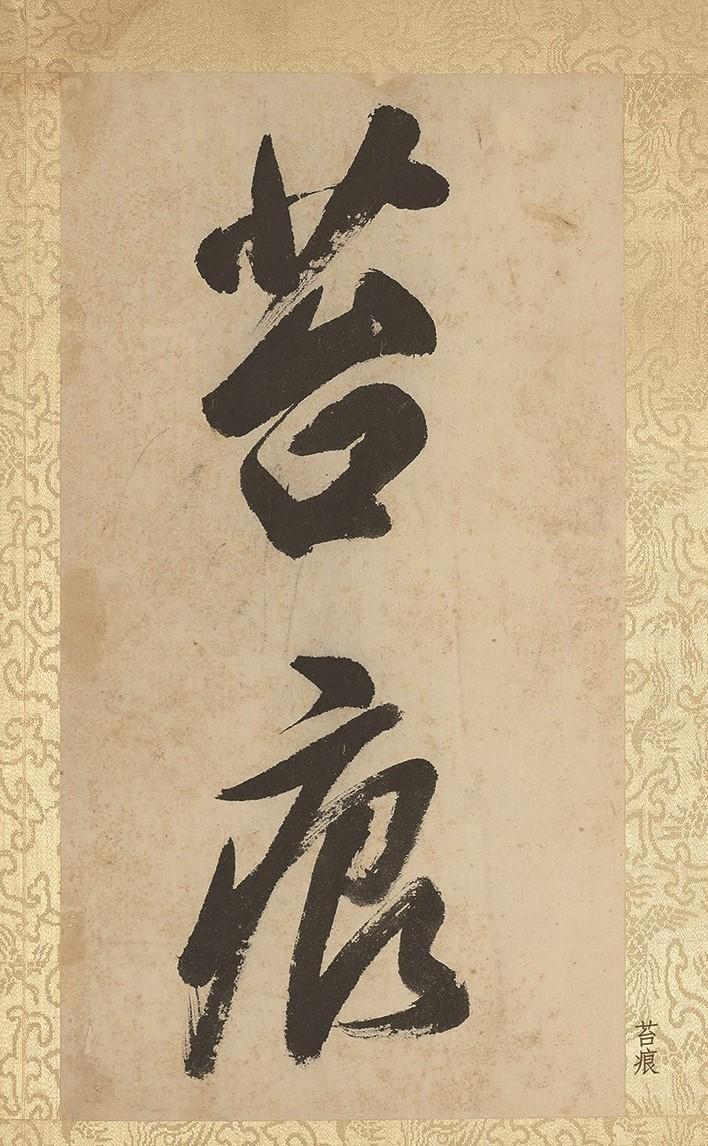 苔痕
苔痕